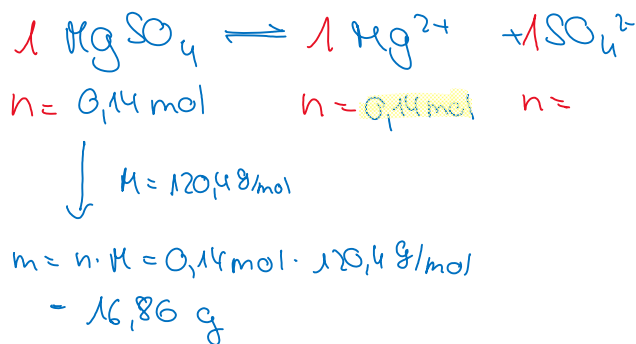 1 MgSO₄ ⇌ 1 Mg²⁺ + 1 SO₄²⁻
n = 0,14 mol n = 0,14 mol n =
M = 120,4 g/mol
m = n · M = 0,14 mol · 120,4 g/mol
- 16,86 g